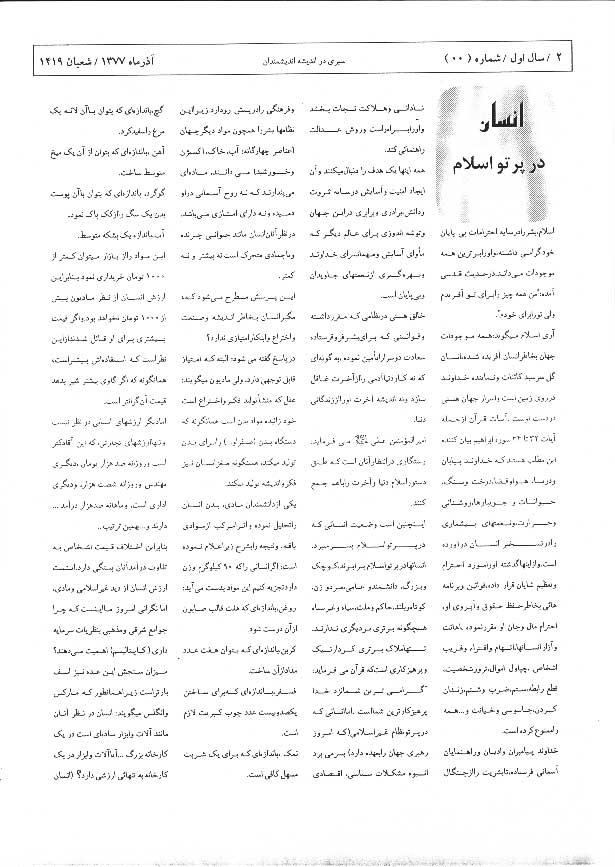 ۲ / سال اول / شماره ( ۰۰ )
سیری در اندیشه اندیشمندان
آذر ماه ۱۳۷۷ / شعبان ۱۴۱۹
انسان
در پرتو اسلام
اسلام،بشررادرسایه احترامات بی پایان
خودگرامی داشته،واورابرترین همه
موجودات می‌داند.درحدیث قدسی
آمده:من همه چیز رابرای تو آفریدم
ولی تورابرای خودم!
آری اسلام میگوید:همه موجودات
جهان بخاطرانسان آفریده شده،انسان
گل سرسبد کائنات ونماینده خداوند
درروی زمین است واسرار جهان هستی
دردست اوست .آیات قرآن ازجمله
آیات ۳۲ تا ۳۴ سوره ابراهیم بیان کننده
این مطلب هستند که خداوند بیابان
ودریا، هواوفضا،درخت وسنگ،
حیوانات و جویبارها،روشنائی
وحرارت،ونعمتهای بیشماری
رادرتسخیر انسان درآورده
است،وازاینهاگذشته اورامورد احترام
وتعظیم شایان قرار داده،قوانین وبرنامه
هائی بخاطرحفظ حقوق وآبروی او،
احترام مال وجان او مقررنموده ،اهانت
وآزار انسانها،اتهام وافتراء وفریب
اشخاص ،چپاول اموال،ترورشخصیت،
قطع رابطه،ستم،ضرب وشتم،زندان
کردن،جاسوسی وخیانت و...همه
راممنوع کرده است.
خداوند پیامبران وادیان وراهنمایان
آسمانی فرستاده،تابشریت راازچنگال
نادانی وهلاکت نجات بخشد
واورابه‌راه‌راست وروش عدالت
راهنمائی کند.
همه اینها یک هدف را دنبال‌میکنند وآن
ایجاد امنیت وآسایش درسایه ثروت
ودانش،برادری وبرابری دراین جهان
وتوشه اندوزی برای عالم دیگر که
مأوای آسایش ومهمانسرای خداوند
وبهره‌گیری ازنعمتهای جاویدان
وبی‌پایان است.
خالق هستی درنظامی که مقررداشته
وقوانینی که برای‌بشرفروفرستاده
سعادت دوسراراتأمین نموده ،به گونه‌ای
که نه کاردنیا،آدمی راازآخرت غافل
سازد ونه اندیشه آخرت اورااززندگانی
دنیا.
امیرالمؤمنین علی می فرماید:
رستگاری درانتظارآنان است که طبق
دستوراسلام دنیا وآخرت راباهم جمع
کنند.
اینچنین است وضعیت انسانی که
درپرتواسلام بسرمیبرد.
انسانهادرپرتواسلام برابرند،کوچک
وبزرگ، دانشمندو عامی،مردو زن،
کوتاه‌وبلند،حاکم وملت،سیاه وغیرسیاه
هیچگونه برتری بردیگری ندارند.
تنهاملاک برتری کردارنیک
وپرهیزکاری است‌که قرآن می فرماید:
"گرامی ترین شمانزد خدا
پرهیزکارترین شماست .امانسانی که
درپرتونظام غیراسلامی(که امروز
رهبری جهان رابعهده دارد) بسرمی برد
انبوه مشکلات سیاسی، اقتصادی
وفرهنگی رادرپیش رودارد زیرااین
نظامها بشررا همچون مواد دیگرجهان
(عناصر چهارگانه: آب، خاک، اکسیژن
وخورشید) می دانند، ماده‌ای
می‌پندارند که نه روح آسمانی دراو
دمیده ونه دارای امتیازی می‌باشد.
درنظرآنان‌انسان مانند حیوانی چرنده
وباجمادی متحرک است‌نه بیشتر و نه
کمتر.
این پرسش مطرح می‌شود که،
مگرانسان بخاطر اندیشه وصنعت
واختراع وابتکارامتیازی ندارد؟
درپاسخ گفته می شود: البته که امتیاز
قابل توجهی دارد، ولی مادیون میگویند:
عقل که منشأتولید فکر واختراع است
خود زائیده مواد بدن است همانگونه که
دستگاه بدن (صفراوی...) رابرای بدن
تولید میکند، همینگونه مغزانسان نیز
فکرواندیشه تولید میکند:
یکی ازدانشمندان مادی، بدن انسان
راتحلیل نموده واثرامرکب ازموادی
یافته ونتیجه رابشرح زیراعلام نموده
است: اگرانسانی راکه ۹۰ کیلوگرم وزن
دارد،تجزیه کنیم این موادبدست می‌آید:
روغن،باندازه‌ای که هفت قالب صابون
ازآن درست شود.
کربن،باندازه‌ای که بتوان هفت عدد
مدادازآن ساخت.
فسفرباندازه‌ای که‌برای ساختن
یکصدوبیست عدد چوب کبریت لازم
است.
نمک ،باندازه‌ای که برای یک شربت
مسهل کافی است.
گچ،باندازه‌ای که بتوان باآن لانه یک
مرغ راسفیدکرد.
آهن ،باندازه‌ای که بتوان از آن یک میخ
متوسط ساخت.
گوگرد، باندازه‌ای که بتوان باآن پوست
بدن یک سگ راازکک پاک نمود.
آب،باندازه یک بشکه متوسط.
این مواد رااز بازار میتوان کمتر از
۱۰۰۰ تومان خریداری نمود،بنابراین
ارزش انسان از نظر مادیون بیش
از ۱۰۰۰ تومان نخواهد بود.واگر قیمت
بیشتری برای او قائل شدندازاین
نظراست که استفاده‌اش بیشتراست،
همانگونه که اگر گاوی بیشتر شیر بدهد
قیمت آن‌گرانتر است.
امادیگر ارزشهای انسانی در نظر نیست
وتنهاارزشهای تجارتی، که این آقادکتر
است وروزانه صد هزار تومان ،دیگری
مهندس وروزانه شصت هزار، ودیگری
اداری است، وماهانه صدهزار درآمد ...
دارند و...بهمین ترتیب..
بنابراین اختلاف قیمت اشخاص به
تفاوت درآمدآنان بستگی دارد.اینست
ارزش انسان از دید غیراسلامی ومادی.
امانگرانی امروز مااینست که چرا
جوامع شرقی ومذهبی بنظریات سرمایه
داری ( کاپیتالیسم) اهمیت می‌دهند؟
میزان سنجش این عده نیز اسف
بارتراست زیراهمانطور که مارکس
وانگلس میگویند: انسان در نظر آنان
مانند آلات وابزار ساده‌ای است در یک
کارخانه بزرگ ...آیاآلات وابزار در یک
کارخانه به تنهائی ارزشی دارد؟ (انسان